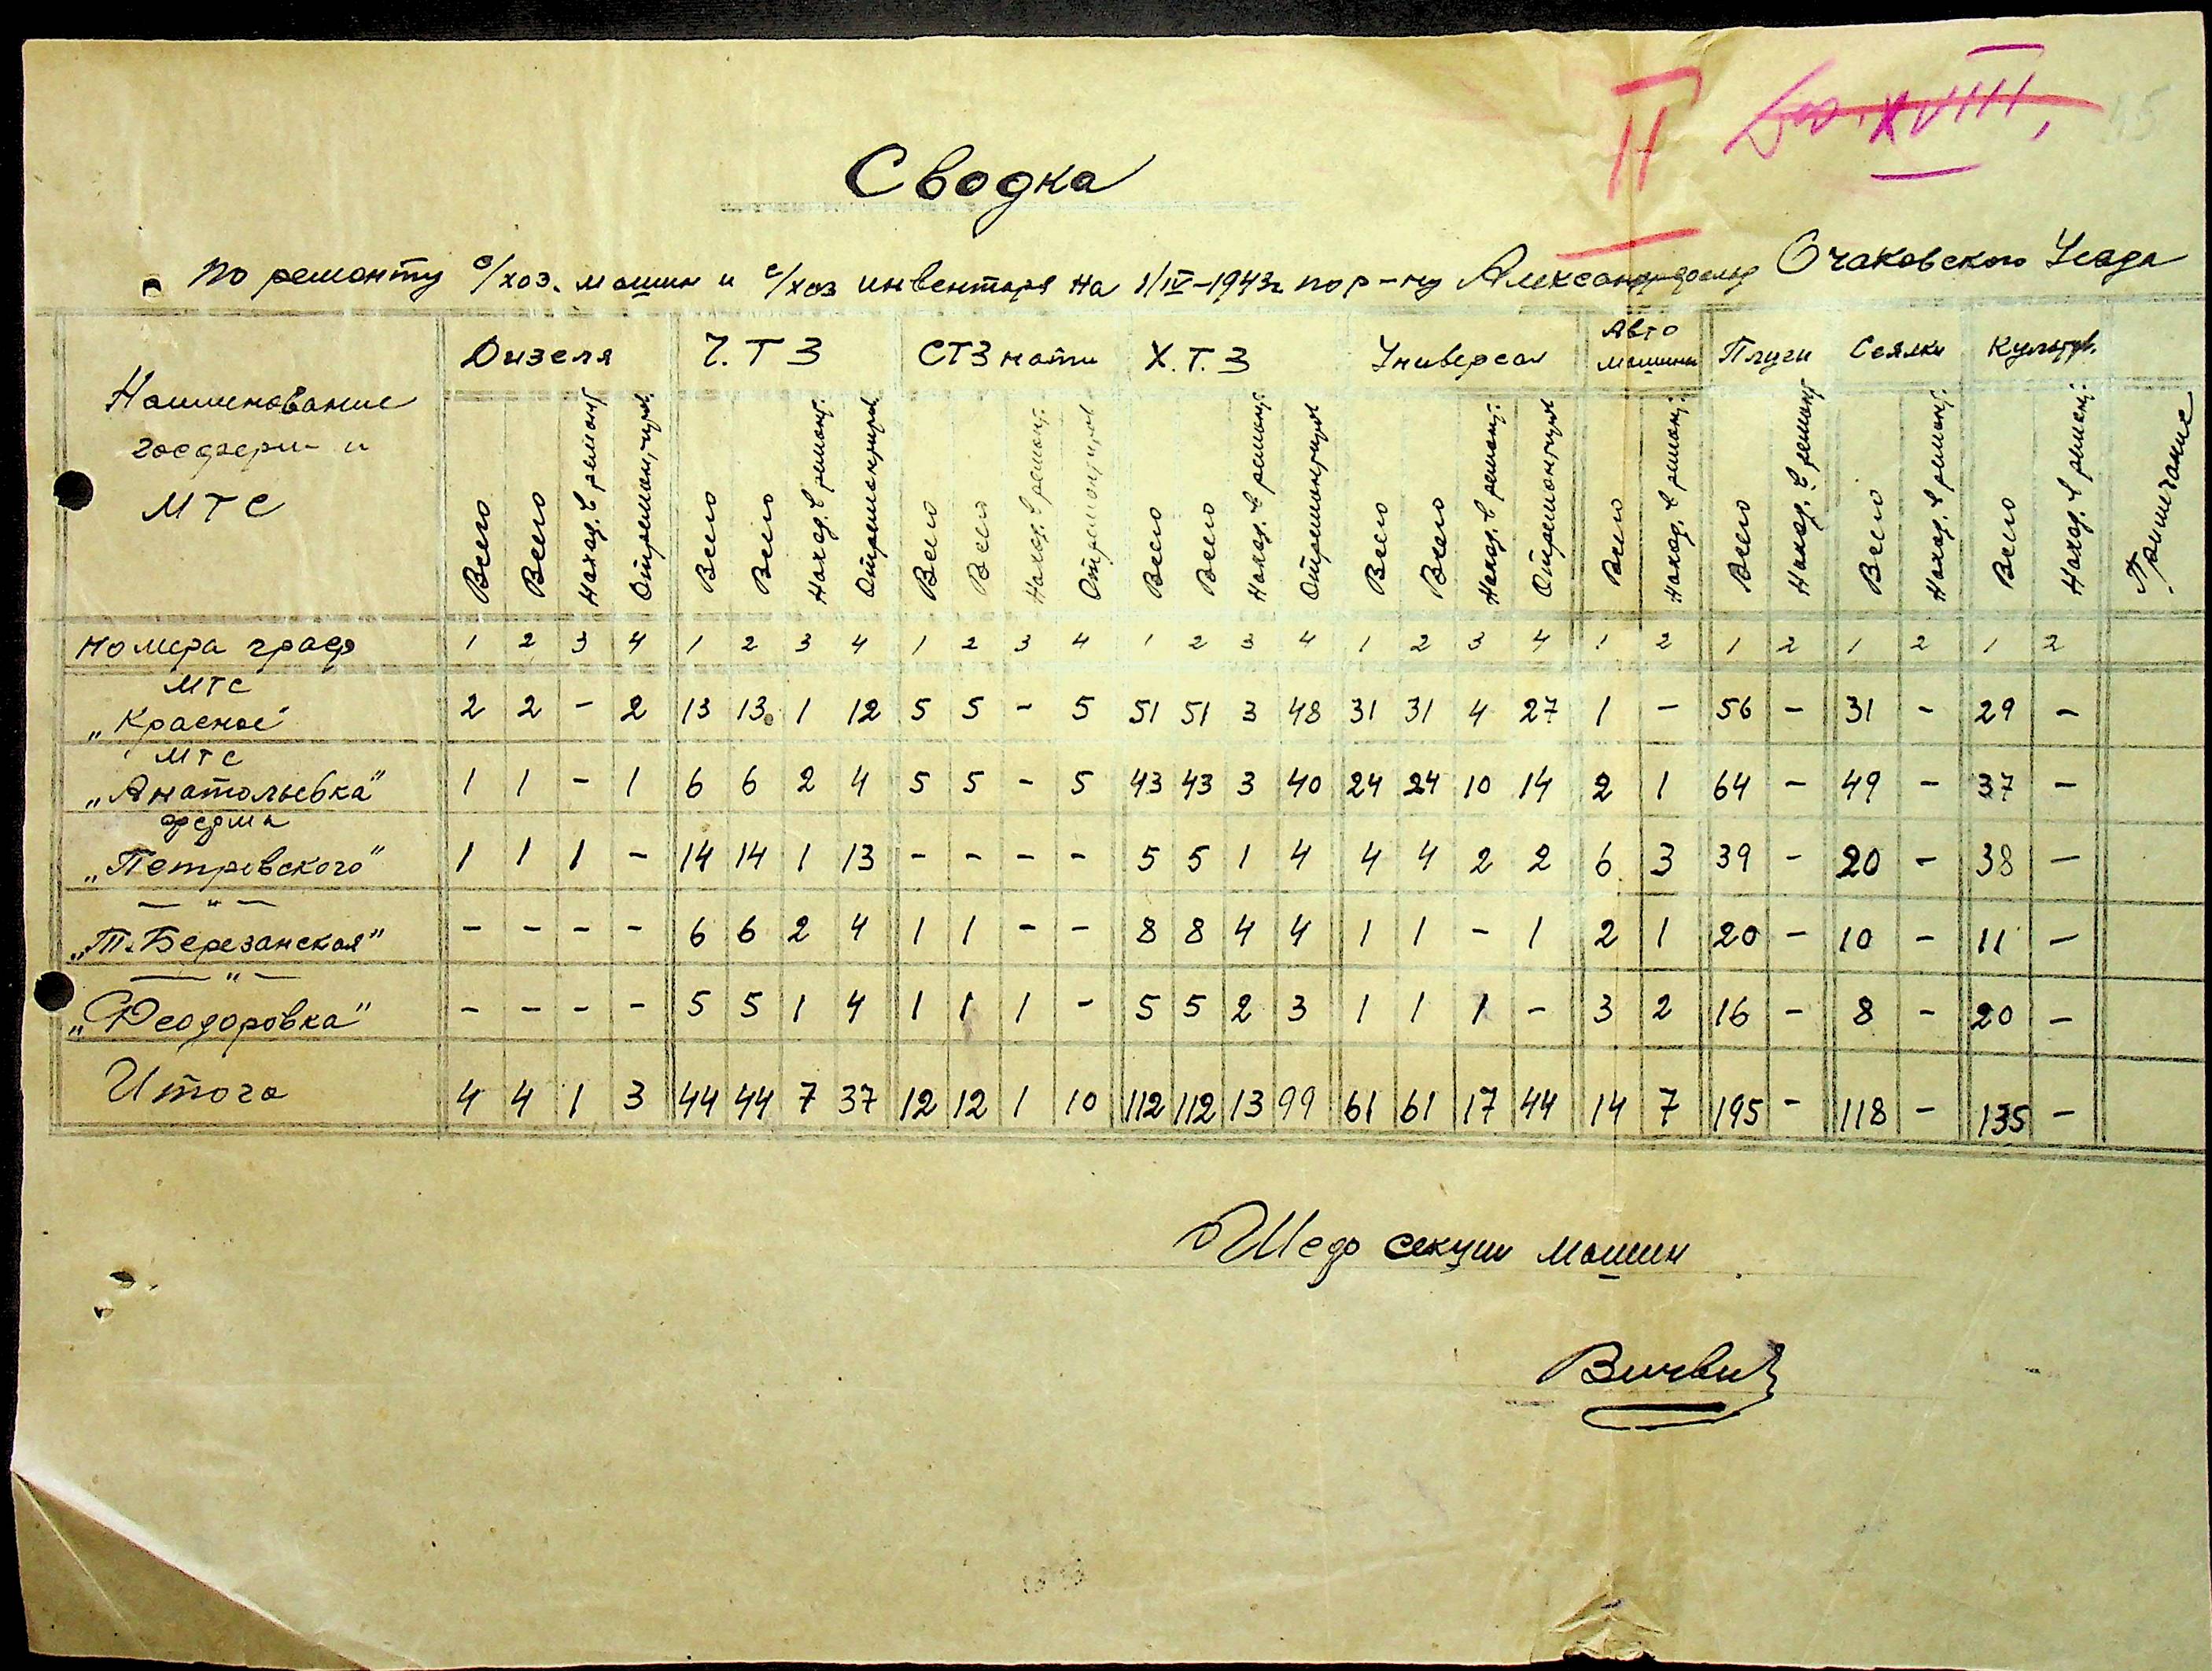 II XVIII.
Сводка
по ремонту с/хоз. машин и с/хоз инвентаря на 1/IV-1943г по р-ну Александрдольф Очаковского Уезда
Наименование госферм и МТС | Дизеля | Ч.Т З | СТЗ нати | Х.Т.З | Универсал | Авто машины | Плуги | Сеялки | Культив. | Примечание
Всего | Всего | Наход. в ремонт | Отремонтиров. | Всего | Всего | Наход. в ремонт. | Отремонтиров. | Всего | Всего | Наход. в ремонт. | Отремонтиров | Всего | Всего | Наход. в ремонт. | Отремонтиров | Всего | Всего | Наход. в ремонт. | Отремонтиров | Всего | Наход. в ремонт. | Всего | Наход. в ремонт | Всего | Наход. в ремонт. | Всего | Наход. в ремонт.
Номера граф 1 2 3 4 1 2 3 4 1 2 3 4 1 2 3 4 1 2 3 4 1 2 1 2 1 2 1 2
МТС
„Красное" 2 2 - 2 13 13 1 12 5 5 - 5 51 51 3 48 31 31 4 27 1 - 56 - 31 - 29 -
МТС
„Анатольевка" 1 1 - 1 6 6 2 4 5 5 - 5 43 43 3 40 24 24 10 14 2 1 64 - 49 - 37 -
ферма
„Петровского" 1 1 1 - 14 14 1 13 - - - - 5 5 1 4 4 4 2 2 6 3 39 - 20 - 38 -
— " —
„Т. Березанская" - - - - 6 6 2 4 1 1 - - 8 8 4 4 1 1 - 1 2 1 20 - 10 - 11 -
— " —
„Феодоровка" - - - - 5 5 1 4 1 1 1 - 5 5 2 3 1 1 1 - 3 2 16 - 8 - 20 -
Итого 4 4 1 3 44 44 7 37 12 12 1 10 112 112 13 99 61 61 17 44 14 7 195 - 118 - 135 -
Шеф секции машин